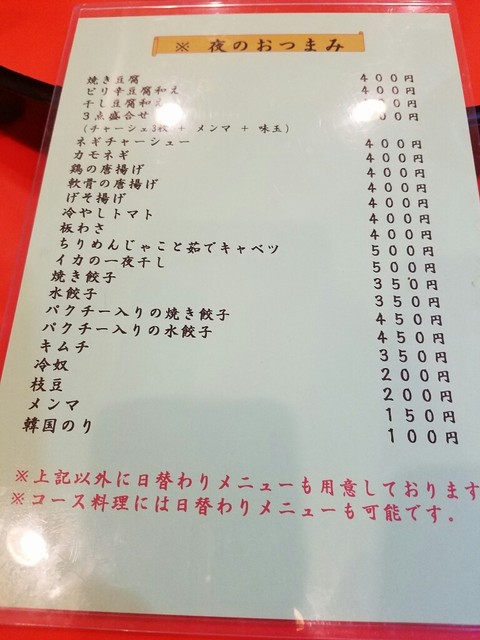 ※ 夜のおつまみ
焼き豆腐 400円
ピリ辛豆腐和え 400円
干し豆腐和え 400円
3点盛合せ 00円
(チャーシュ3枚 + メンマ + 味玉)
ネギチャーシュー 400円
カモネギ 400円
鶏の唐揚げ 400円
軟骨の唐揚げ 400円
げそ揚げ 400円
冷やしトマト 400円
板わさ 400円
ちりめんじゃこと茹でキャベツ 500円
イカの一夜干し 500円
焼き餃子 350円
水餃子 350円
パクチー入りの焼き餃子 450円
パクチー入りの水餃子 450円
キムチ 350円
冷奴 200円
枝豆 200円
メンマ 150円
韓国のり 100円
※上記以外に日替わりメニューも用意しております
※コース料理には日替わりメニューも可能です。